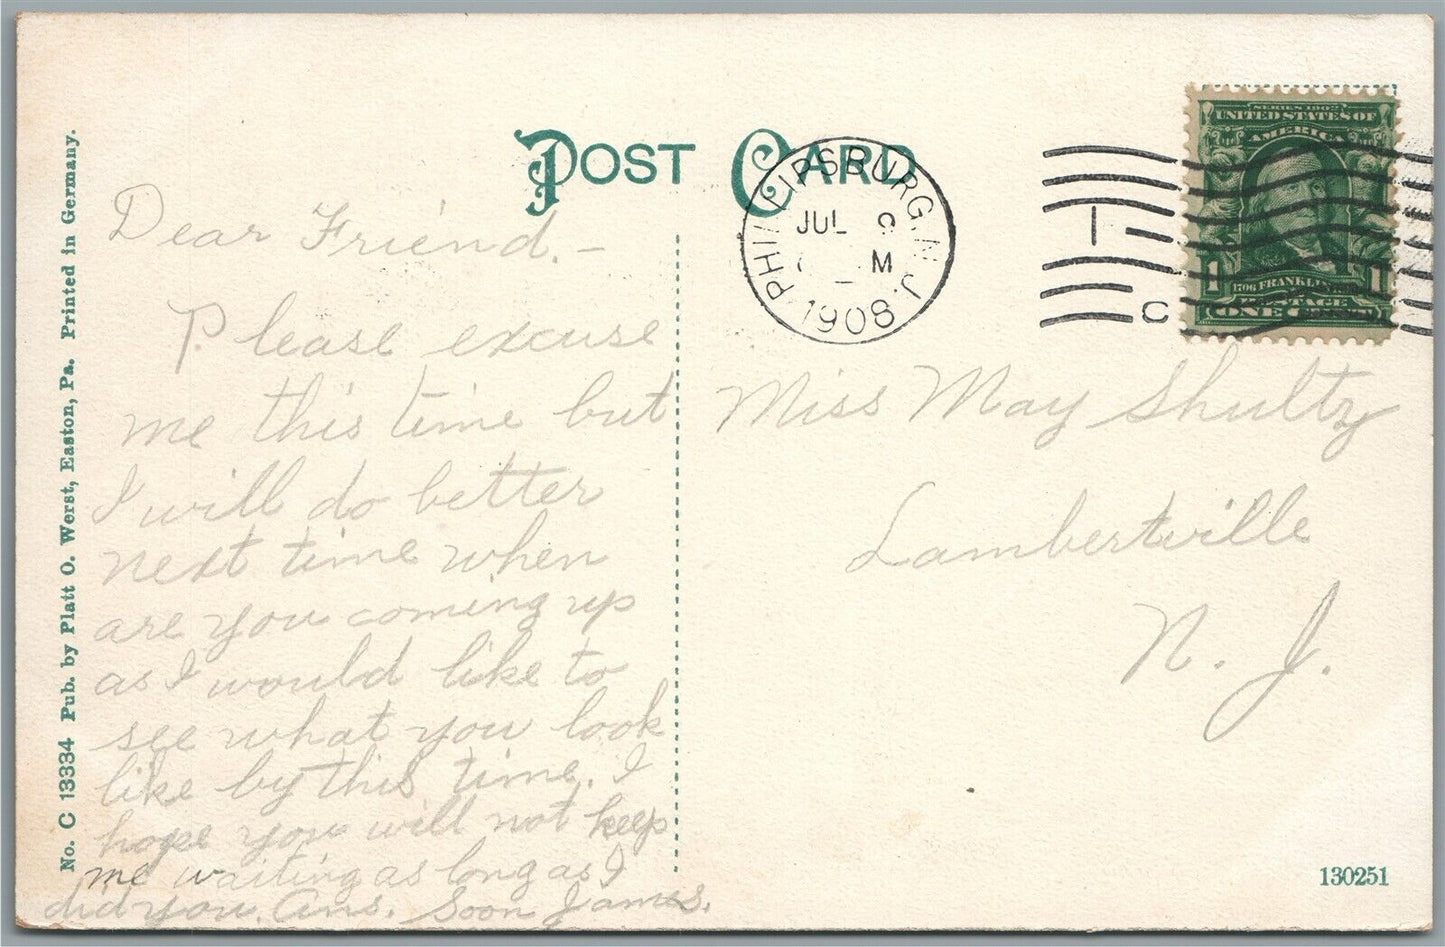 POST CARD
PHILLIPSBURG, N.J.
JUL 9
M
1908
1
C
SERIES 1902
UNITED STATES OF
AMERICA
1 1
1706 FRANKLIN
POSTAGE
ONE
Dear Friend. –
Please excuse
me this time but
I will do better
next time when
are you coming up
as I would like to
see what you look
like by this time. I
hope you will not keep
me waiting as long as I
did you. Ans. Soon James.
Miss May Shultz
Lambertville
N. J.
No. C 13334 Pub. by Platt O. Werst, Easton, Pa. Printed in Germany.
130251